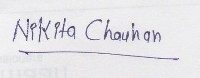 Nikita Chauhan